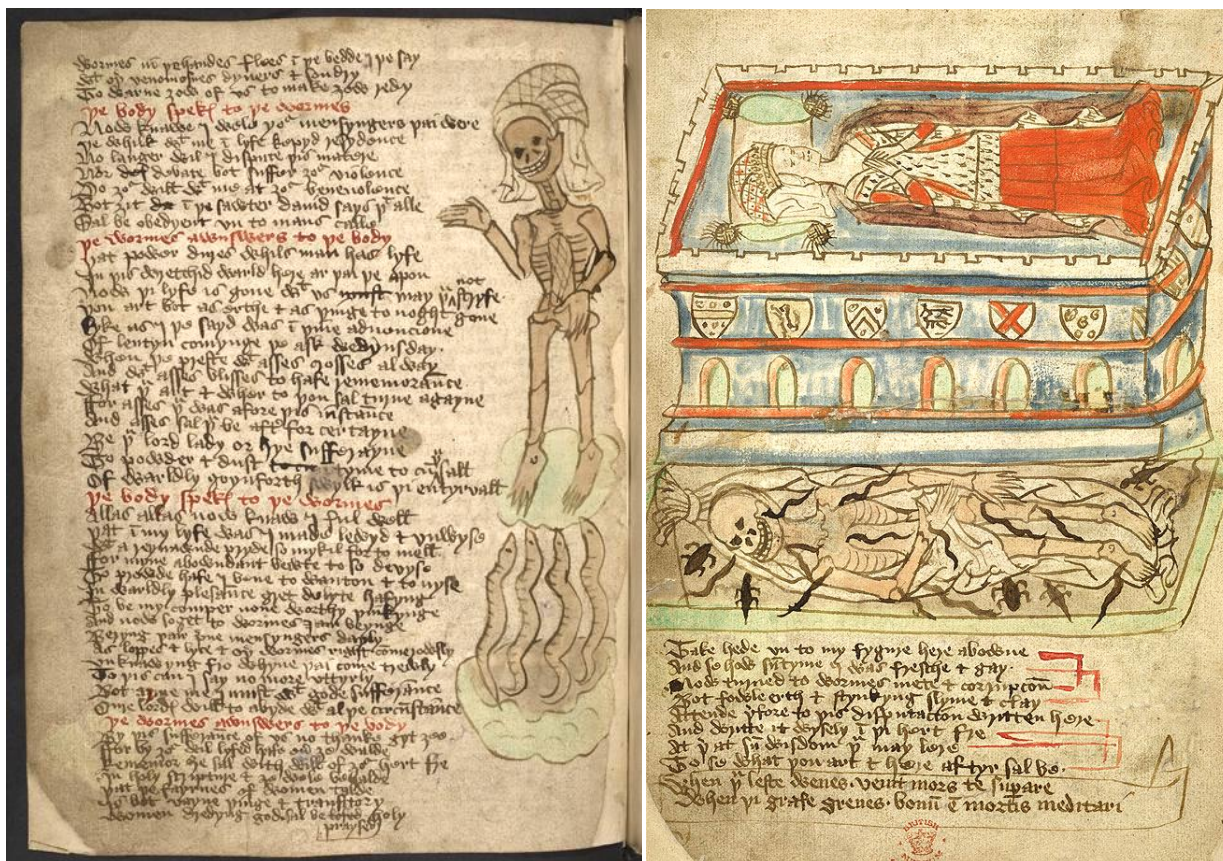 wormes in þe handes flees ī þe bedde I þe say
wt oþ venomosnes dyuers & sondry
To warne ȝow of vs to make ȝow redy
þe body spekes to þe wormes
Now knawe I wele ȝor mensyngers þai were
þe whilk wt me ī lyfe kepyd resydence
No langer wil I dispute þis matere
Nor debate bot suffer ȝor violence
Do ȝor will wt me at ȝor beneuolence
Bot ȝit ī þe sawter dauid says þt alle
Sal be obedyent vn to mans calle
þe wormes answers to þe body
þat power dures whils man has lyfe
In þis wretchid warld here ar þai þe apon
Now þi lyfe is gone wt vs may þu not stryfe
þou art bot as erthe & as þinge to noght gone
Lyke as I þe sayd was ī þine aduencione
Of lentyn comynge þe aske wedynsday
When þe preste wt asses crosses alway
And wt asses blisses to hafe rememorance
What þu art & wher to þou sal turne agayne
For asses þu was afore þis instance
And asses sal þu be aftr for certayne
Be þu lord lady or hye sufferayne
To powder & dust ī tyme to cū þu sall
Of warldly goynforth whylk is þi entyrvall
þe body spekes to þe wormes
Allas allas now knaw I ful well
þat ī my lyfe was I made lewyd & vnwyse
Wt a reynande pryde so mykil for to mell
For myne abowndant bewte to so devyse
To prowde hafe I bene to wanton & to nyse
In warldly plesance gret delyte hafyng
To be my comper none worthy þinkynge
And now soget to wormes I am beynge
Beryng þair þine mensyngers dayly
As loppes & lyce & oþ wormes right comerodusly
Vnknawyng fro whyne þai come trewly
To þis can I say no more vttyrly
Bot arme me I must wt gode sufferance
Our lordes will to abyde wt al þe circūstance
þe wormes answers to þe body
By þis sufferance of vs no thanke gyt ȝoe
For by ȝor wil lyfed hafe old ȝe wulde
Rememor ȝe sill with will of ȝor hert fre
In holy scripture & ȝe wole behalde
þat þe fayrnes of women talde
Is bot vayne þinge & transitory
Women dredyng god sal be lofed holy
praysed
Take hede vn to my fygure here abowne
And se how sūtyme I was fresche & gay
Now turned to wormes mete & corrupcōn
Bot fowle erth & stynkyng slyme & clay
Attende þerfore to þis disputacōn written here
And writte it wysely ī þi hert fre
At þer at sū wisdom þu may lere
To se what þou art & here aftyr sal be
When þu leste wenes. venit mors te supare
When þi grafe grenes. bonū ē mortis meditari
BRITISH MUSEUM